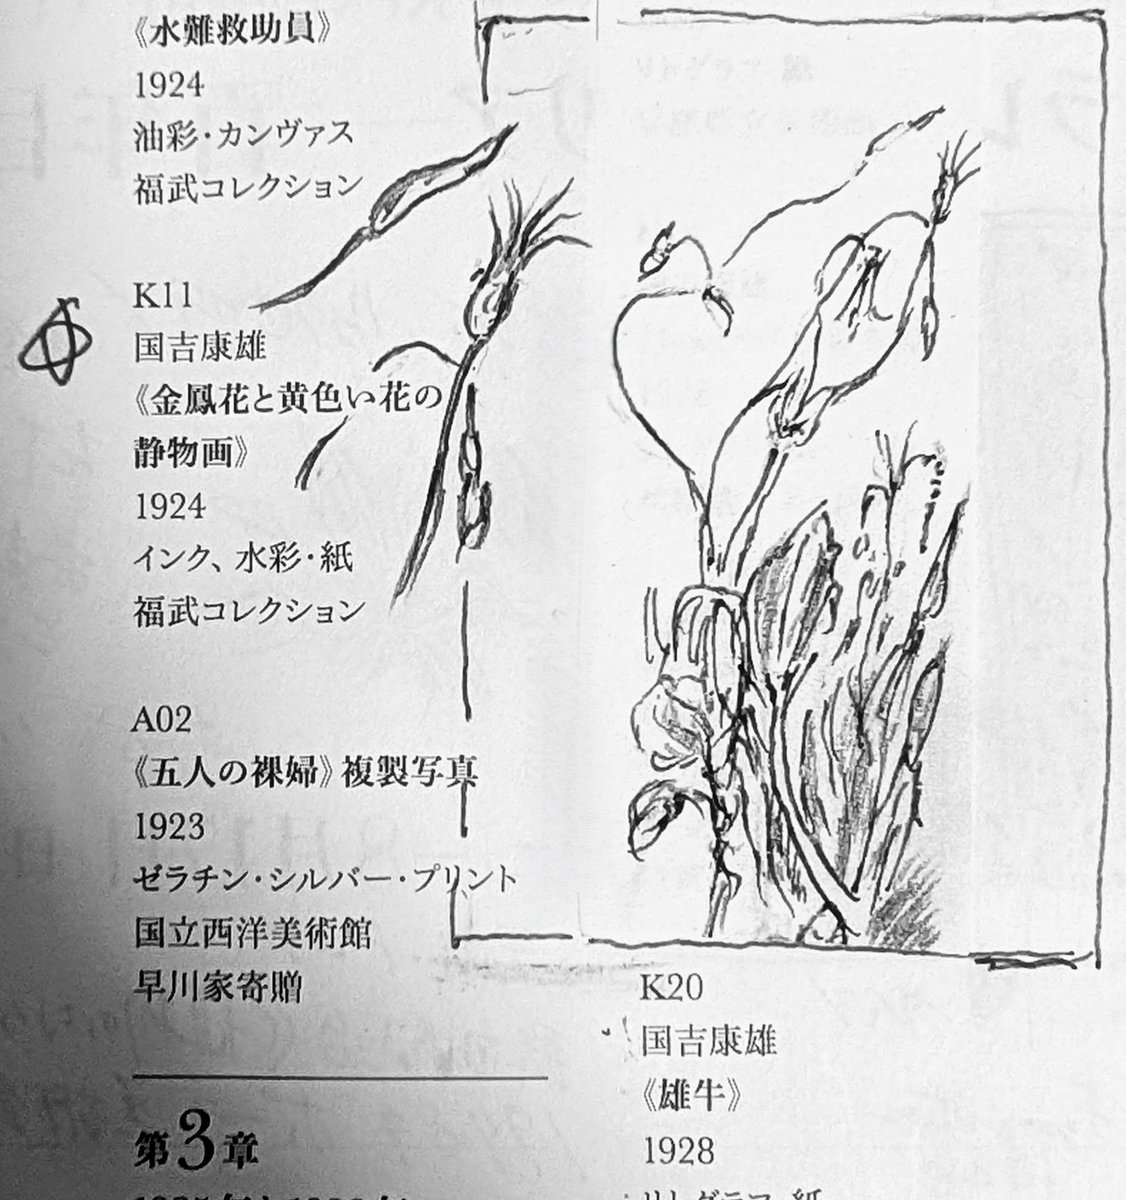 《水難救助員》
1924
油彩・カンヴァス
福武コレクション
K11
国吉康雄
《金鳳花と黄色い花の
静物画》
1924
インク、水彩・紙
福武コレクション
A02
《五人の裸婦》複製写真
1923
ゼラチン・シルバー・プリント
国立西洋美術館
早川家寄贈
第3章
K20
国吉康雄
《雄牛》
1928
リトグラフ・紙